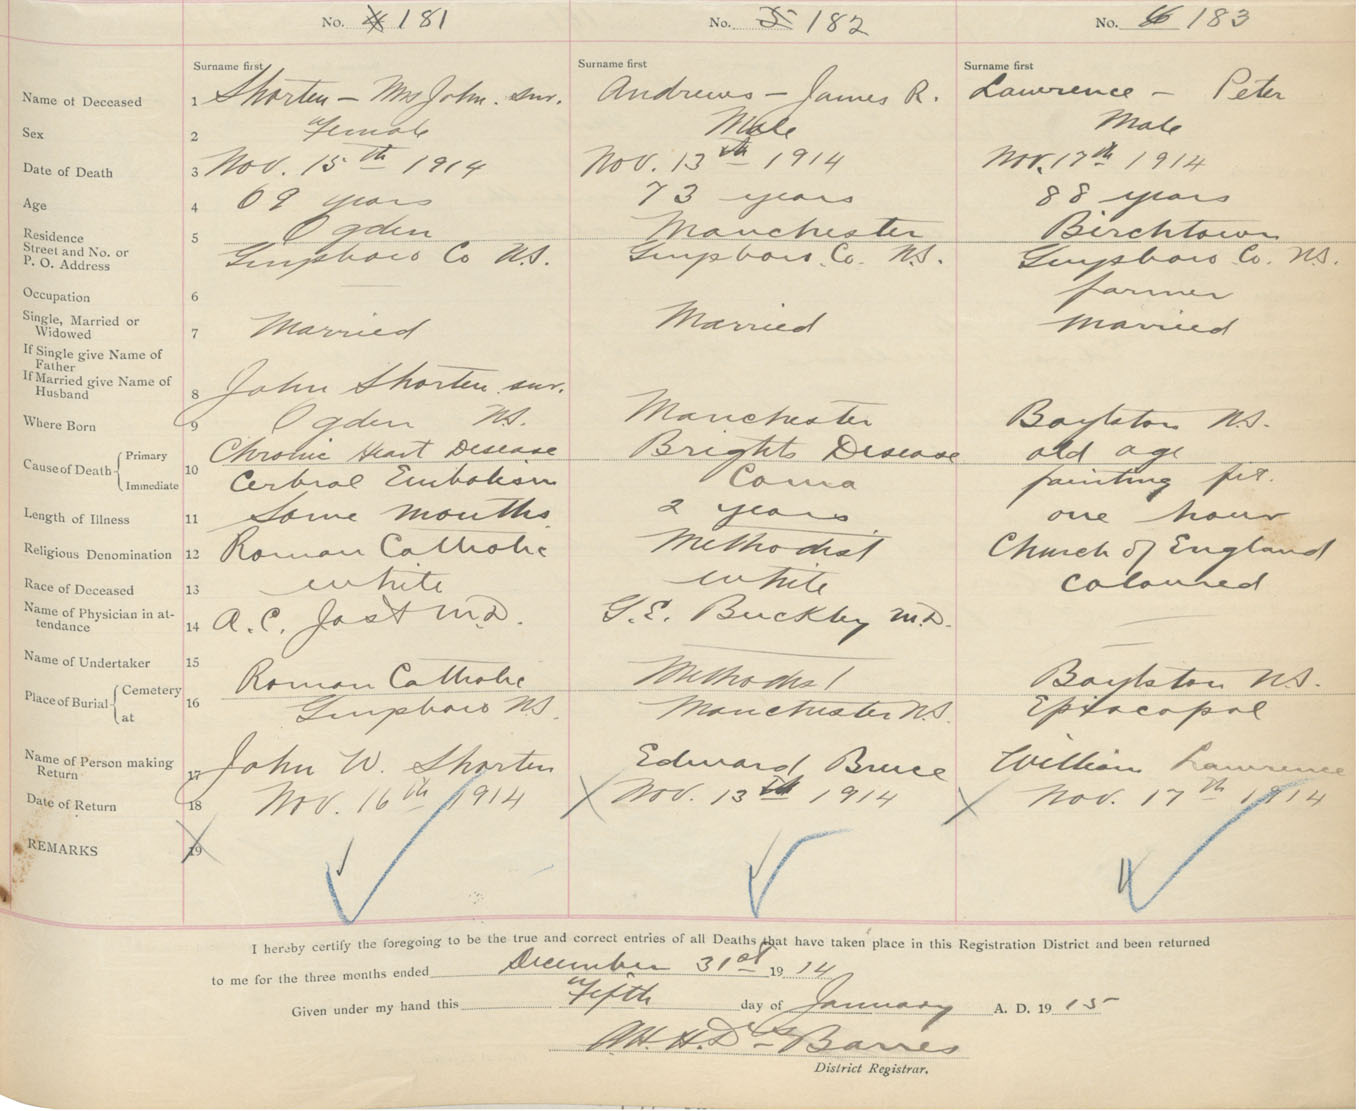 No. 4 181 No. 5 182 No. 6 183
Surname first Surname first Surname first
Name of Deceased 1 Shorten — Mrs John. snr. Andrews — James R. Lawrence — Peter
Sex 2 Female Male Male
Date of Death 3 Nov. 15th 1914 Nov. 13th 1914 Nov. 17th 1914
Age 4 69 years 73 years 88 years
Residence 5 Ogden Manchester Birchtown
Street and No. or
P. O. Address Guysboro Co N.S. Guysboro. Co. N.S. Guysboro Co. N.S.
Occupation 6 — farmer
Single, Married or
Widowed 7 Married Married Married
If Single give Name of
Father
If Married give Name of
Husband 8 John Shorten snr.
Where Born 9 Ogden N.S. Manchester Boylston N.S.
Cause of Death Primary 10 Chronic Heart Disease Brights Disease old age
Immediate Cerbral Embolism Coma fainting fit.
Length of Illness 11 Some months 2 years one hour
Religious Denomination 12 Roman Catholic Methodist Church of England
Race of Deceased 13 white white coloured
Name of Physician in at-
tendance 14 A. C. Jost M.D. G. E. Buckley M.D. —
Name of Undertaker 15 — —
Place of Burial Cemetery 16 Roman Catholic Methodist Boylston N.S.
at Guysboro N.S. Manchester N.S. Episcopal
Name of Person making
Return 17 John W. Shorten Edward Bruce William Lawrence
Date of Return 18 Nov. 16th 1914 Nov. 13th 1914 Nov. 17th 1914
REMARKS 19
I hereby certify the foregoing to be the true and correct entries of all Deaths that have taken place in this Registration District and been returned
to me for the three months ended December 31st 1914
Given under my hand this Fifth day of January A. D. 1915
H. Des Barres
District Registrar.